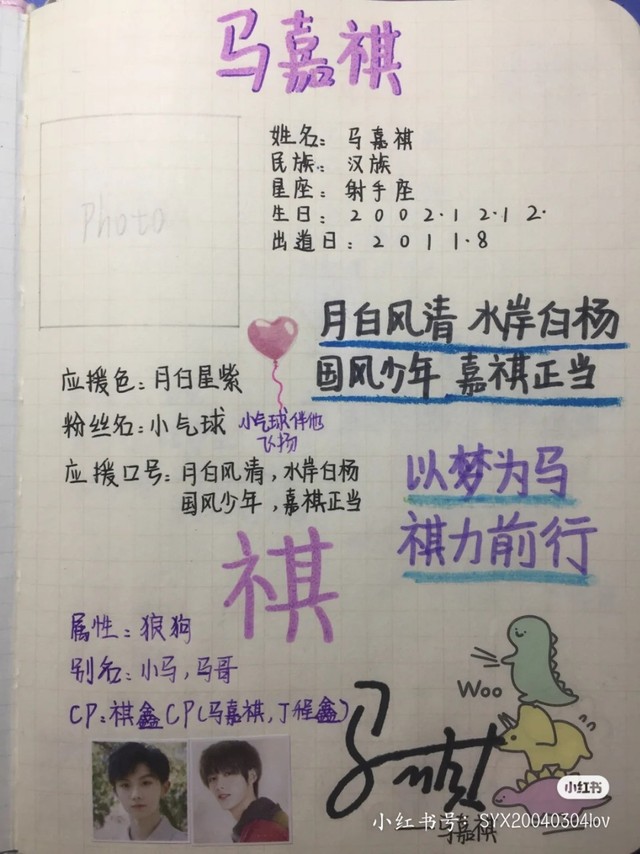 马嘉祺
photo
姓名：马嘉祺
民族：汉族
星座：射手座
生日：2002.12.12.
出道日：2011.8
月白风清 水岸白杨
国风少年 嘉祺正当
应援色：月白星紫
粉丝名：小气球
小气球伴他
飞扬
应援口号：月白风清，水岸白杨
国风少年，嘉祺正当
以梦为马
祺力前行
祺
属性：狼狗
别名：小马，马哥
CP：祺鑫CP（马嘉祺，丁程鑫）
Woo
小红书
马嘉祺
小红书号：SYX20040304lov